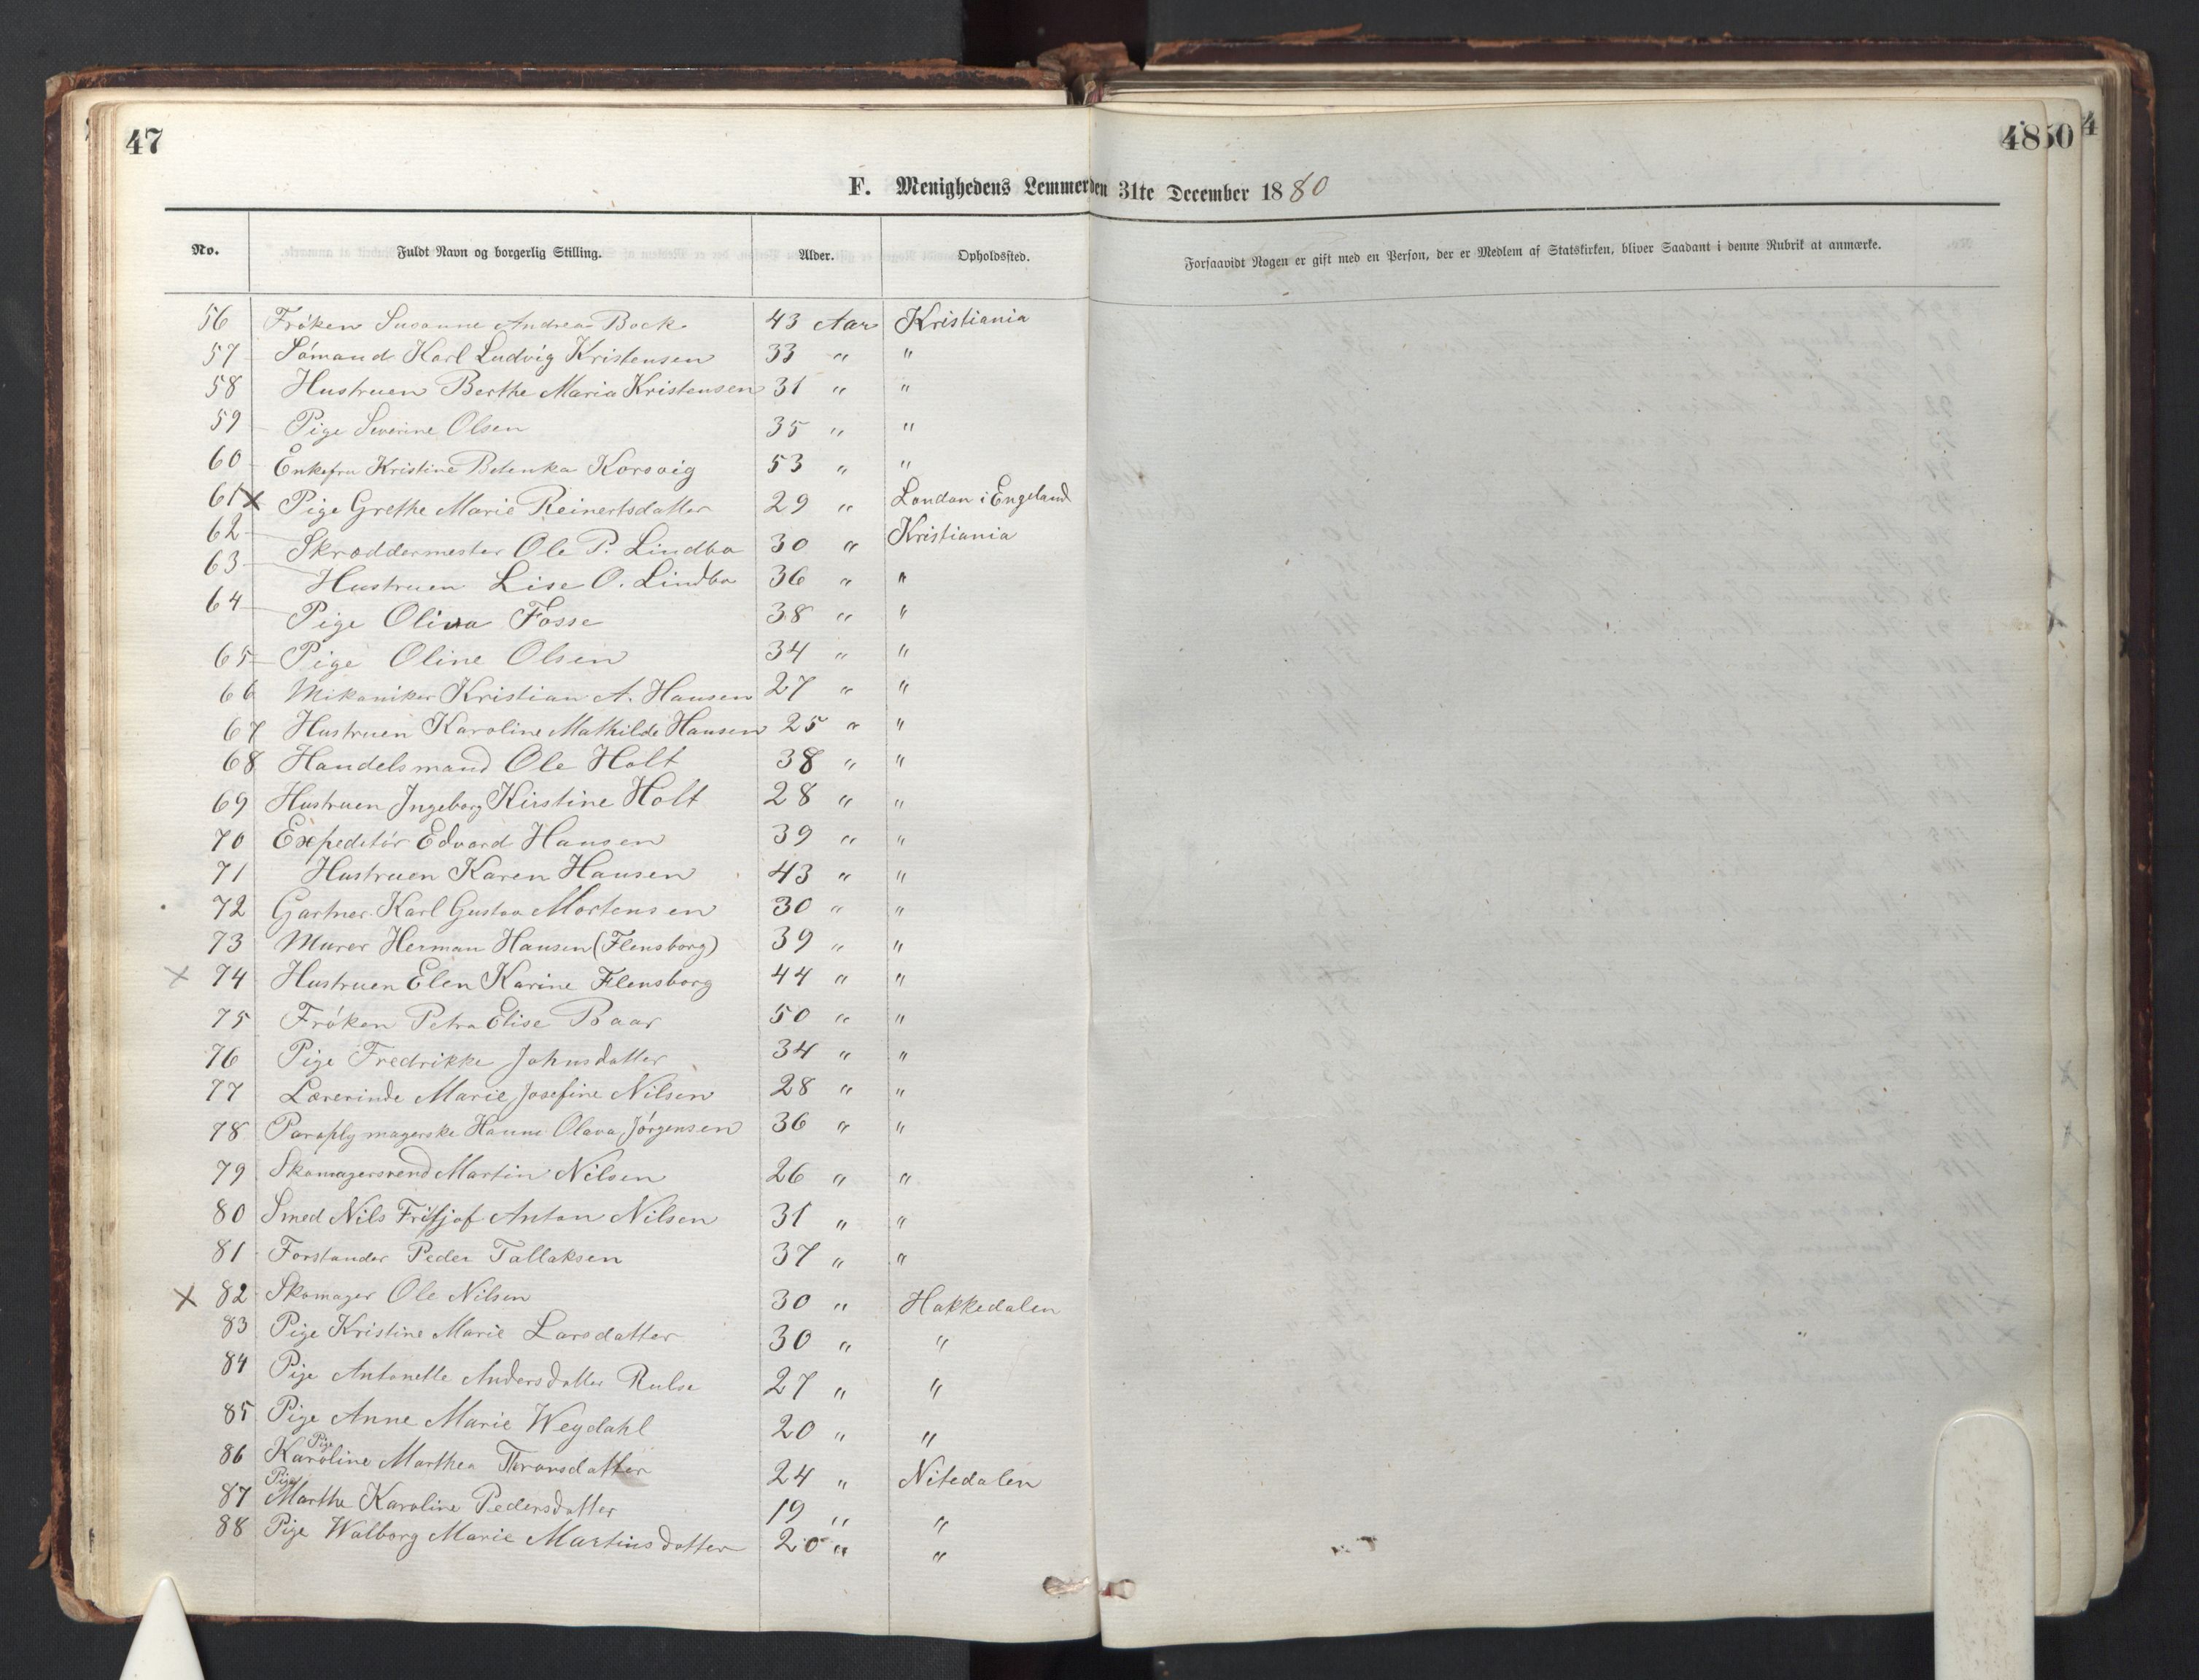 47
48
50
4
F. Menighedens Lemmer den 31te December 1880
No. Fuldt Navn og borgerlig Stilling. Alder. Opholdssted. Forsaavidt Nogen er gift med en Person, der er Medlem af Statskirken, bliver Saadant i denne Rubrik at anmærke.
56 Frøken Susanne Andrea Bock 43 Aar Kristiania
57 Sømand Karl Ludvig Kristensen 33 " "
58 Hustruen Berthe Maria Kristensen 31 " "
59 Pige Severine Olsen 35 " "
60 Enkefru Kristine Korsvig 53 " "
61 x Pige Grethe Marie Reinertsdatter 29 " London i Engeland
62 Skræddermester Ole P. Lindbo 30 " Kristiania
63 Hustruen Lise O. Lindbo 36 " "
64 Pige Oliva Fosse 38 " "
65 Pige Oline Olsen 34 " "
66 Mikaniker Kristian A. Hansen 27 " "
67 Hustruen Karoline Mathilde Hansen 25 " "
68 Handelsmand Ole Holt 38 " "
69 Hustruen Ingeborg Kirstine Holt 28 " "
70 Expeditør Edvard Hansen 39 " "
71 Hustruen Karen Hansen 43 " "
72 Gartner Karl Gustav Mortensen 30 " "
73 Murer Herman Hansen (Flensborg) 39 " "
x 74 Hustruen Elen Karine Flensborg 44 " "
75 Frøken Petra Elise Baar 50 " "
76 Pige Fredrikke Johnsdatter 34 " "
77 Lærerinde Marie Josefine Nilsen 28 " "
78 Paraplymagerske Hanne Olava Jørgensen 36 " "
79 Skomagersvend Martin Nilsen 26 " "
80 Smed Nils Fritjof Anton Nilsen 31 " "
81 Forstander Peder Tallaksen 37 " "
x 82 Skomager Ole Nilsen 30 " Hakkedalen
83 Pige Kristine Marie Larsdatter 30 " "
84 Pige Antonette Andersdatter Rulse 27 " "
85 Pige Anne Marie Weydahl 20 " "
86 Pige Karoline Marthea 24 " Nitedalen
87 Pige Marthe Karoline Pedersdatter 19 " "
88 Pige Walborg Marie Martinsdatter 20 " "